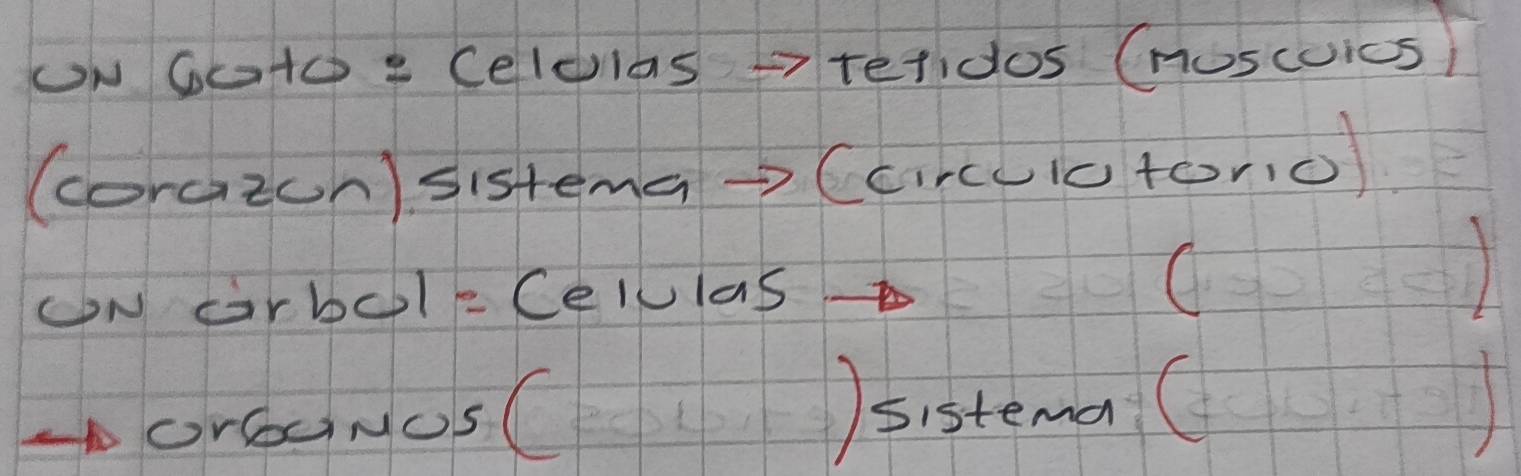 UN Gato = Celulas → tejidos (Musculos)
(corazon) sistema → (circulatorio)
UN árbol = Celulas → ( )
→ orGaNos ( ) sistema ( )